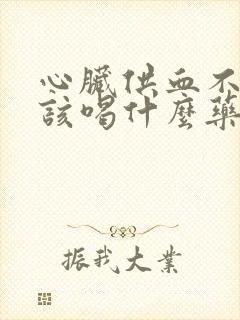 心臟供血不
該喝什麼藥
振我大業